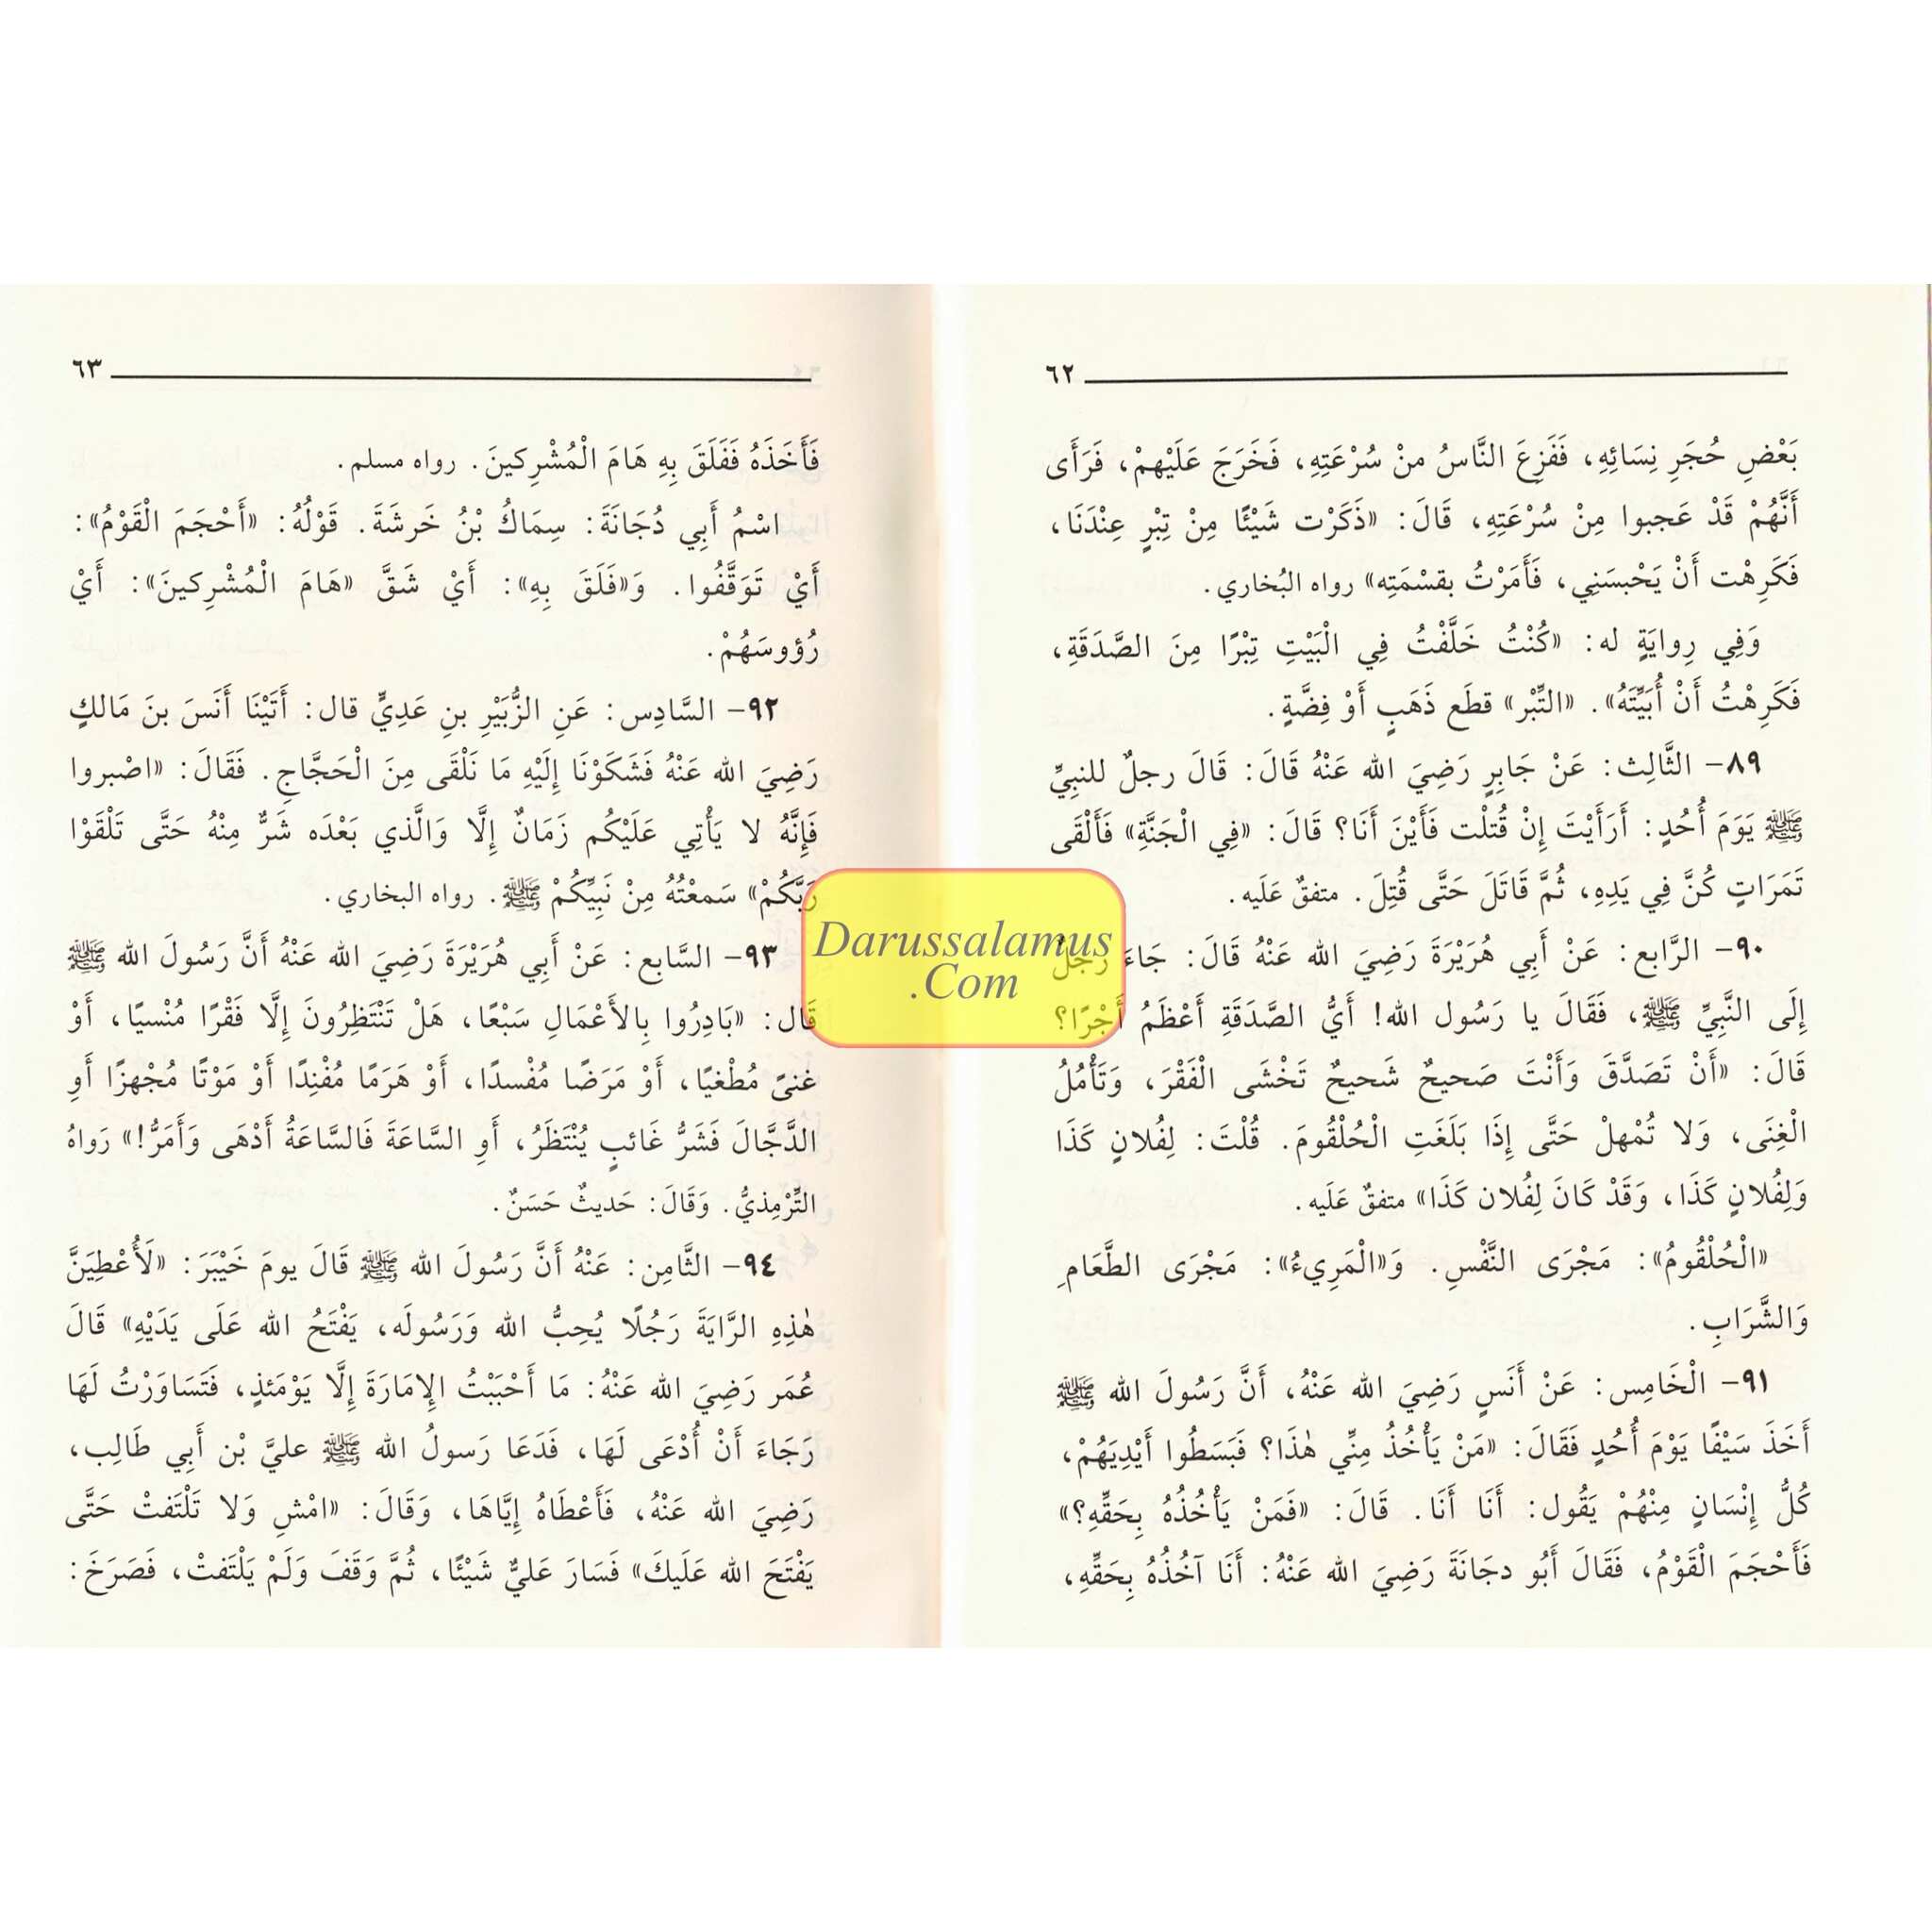 ٦٢
بَعْضِ حُجَرِ نِسَائِهِ، فَفَزِعَ النَّاسُ منْ سُرْعَتِهِ، فَخَرَجَ عَلَيْهمْ، فَرَأَى
أَنَّهُمْ قَدْ عَجبوا مِنْ سُرْعَتِهِ، قَالَ: «ذَكَرْت شَيْئًا مِنْ تِبْرٍ عِنْدَنَا،
فَكَرِهْت أَنْ يَحْبسَنِي، فَأَمَرْتُ بقسْمَتِه» رواه البُخاري.
وَفِي رِوايَةٍ له: «كُنْتُ خَلَّفْتُ فِي الْبَيْتِ تِبْرًا مِنَ الصَّدَقَةِ،
فَكَرِهْتُ أَنْ أُبَيِّتَهُ». «التِّبْر» قطَع ذَهَبٍ أَوْ فِضَّةٍ.
٨٩- الثَّالِث: عَنْ جَابِرٍ رَضِيَ الله عَنْهُ قَالَ: قَالَ رجلٌ للنبِيِّ
ﷺ يَوَمَ أُحُدٍ: أَرَأَيْتَ إِنْ قُتلْت فَأَيْنَ أَنَا؟ قَالَ: «فِي الْجَنَّةِ» فَأَلْقَى
تَمَرَاتٍ كُنَّ فِي يَدِهِ، ثُمَّ قَاتَلَ حَتَّى قُتِلَ. متفقٌ عَلَيه.
٩٠- الرَّابع: عَنْ أَبِي هُرَيْرَةَ رَضِيَ الله عَنْهُ قَالَ: جَاءَ رَجُلٌ
إِلَى النَّبِيِّ ﷺ، فَقَالَ يا رَسُول الله! أَيُّ الصَّدَقَةِ أَعْظَمُ أَجْرًا؟
قَالَ: «أَنْ تَصَدَّقَ وَأَنْتَ صَحيحٌ شَحيحٌ تَخْشَى الْفَقْرَ، وَتَأْمُلُ
الْغِنَى، وَلا تُمْهلْ حَتَّى إِذَا بَلَغَتِ الْحُلْقُومَ. قُلْتَ: لِفُلانٍ كَذَا
وَلِفُلانٍ كَذَا، وَقَدْ كَانَ لِفُلان كَذَا» متفقٌ عَلَيه.
«الْحُلْقُومُ»: مَجْرَى النَّفْسِ. وَ«الْمَرِيءُ»: مَجْرَى الطَّعَامِ
وَالشَّرَابِ.
٩١- الْخَامِس: عَنْ أَنَسٍ رَضِيَ الله عَنْهُ، أَنَّ رَسُولَ الله ﷺ
أَخَذَ سَيْفًا يَوْمَ أُحُدٍ فَقَالَ: «مَنْ يَأْخُذُ مِنِّي هٰذَا؟ فَبَسَطُوا أَيْدِيَهُمْ،
كُلُّ إِنْسَانٍ مِنْهُمْ يَقُول: أَنَا أَنَا. قَالَ: «فَمَنْ يَأْخُذُهُ بِحَقِّهِ؟»
فَأَحْجَمَ الْقَوْمُ، فَقَالَ أَبُو دجَانَةَ رَضِيَ الله عَنْهُ: أَنَا آخُذُهُ بِحَقِّهِ،
٦٣
فَأَخَذَهُ فَفَلَقَ بِهِ هَامَ الْمُشْرِكينَ. رواه مسلم.
اسْمُ أَبِي دُجَانَةَ: سِمَاكُ بْنُ خَرشَةَ. قَوْلُهُ: «أَحْجَمَ الْقَوْمُ»:
أَيْ تَوَقَّفُوا. وَ«فَلَقَ بِهِ»: أَيْ شَقَّ «هَامَ الْمُشْرِكينَ»: أَيْ
رُؤوسَهُمْ.
٩٢- السَّادِس: عَنِ الزُّبَيْرِ بنِ عَدِيٍّ قال: أَتَيْنَا أَنَسَ بنَ مَالكٍ
رَضِيَ الله عَنْهُ فَشَكَوْنَا إِلَيْهِ مَا نَلْقَى مِنَ الْحَجَّاجِ. فَقَالَ: «اصْبروا
فَإِنَّهُ لا يَأْتِي عَلَيْكُم زَمَانٌ إِلَّا وَالَّذي بَعْدَه شَرٌّ مِنْهُ حَتَّى تَلْقَوْا
رَبَّكُمْ» سَمعْتُهُ مِنْ نَبِيِّكُمْ ﷺ. رواه البخاري.
٩٣- السَّابع: عَنْ أَبِي هُرَيْرَةَ رَضِيَ الله عَنْهُ أَنَّ رَسُولَ الله ﷺ
قَال: «بَادِرُوا بِالأَعْمَالِ سَبْعًا، هَلْ تَنْتَظِرُونَ إِلَّا فَقْرًا مُنْسيًا، أَوْ
غنىً مُطْغيًا، أَوْ مَرَضًا مُفْسدًا، أَوْ هَرَمًا مُفْنِدًا أَوْ مَوْتًا مُجْهزًا أَوِ
الدَّجَّالَ فَشَرُّ غَائبٍ يُنْتَظَرُ، أَوِ السَّاعَةَ فَالسَّاعَةُ أَدْهَى وَأَمَرُّ!» رَواهُ
التِّرْمِذيُّ. وَقَالَ: حَديثٌ حَسَنٌ.
٩٤- الثَّامِن: عَنْهُ أَنَّ رَسُولَ الله ﷺ قَالَ يومَ خَيْبَرَ: «لَأُعْطِيَنَّ
هٰذِهِ الرَّايَةَ رَجُلًا يُحِبُّ الله وَرَسُولَه، يَفْتَحُ الله عَلَى يَدَيْهِ» قَالَ
عُمَر رَضِيَ الله عَنْهُ: مَا أَحْبَبْتُ الإِمَارَةَ إِلَّا يَوْمَئذٍ، فَتَسَاوَرْتُ لَهَا
رَجَاءَ أَنْ أُدْعَى لَهَا، فَدَعَا رَسولُ الله ﷺ عليَّ بْن أَبي طَالِب،
رَضِيَ الله عَنْهُ، فَأَعْطَاهُ إِيَّاهَا، وَقَالَ: «امْشِ وَلا تَلْتَفتْ حَتَّى
يَفْتَحَ الله عَلَيكَ» فَسَارَ عَليٌّ شَيْئًا، ثُمَّ وَقَفَ وَلَمْ يَلْتَفتْ، فَصَرَخَ:
Darussalamus
.Com